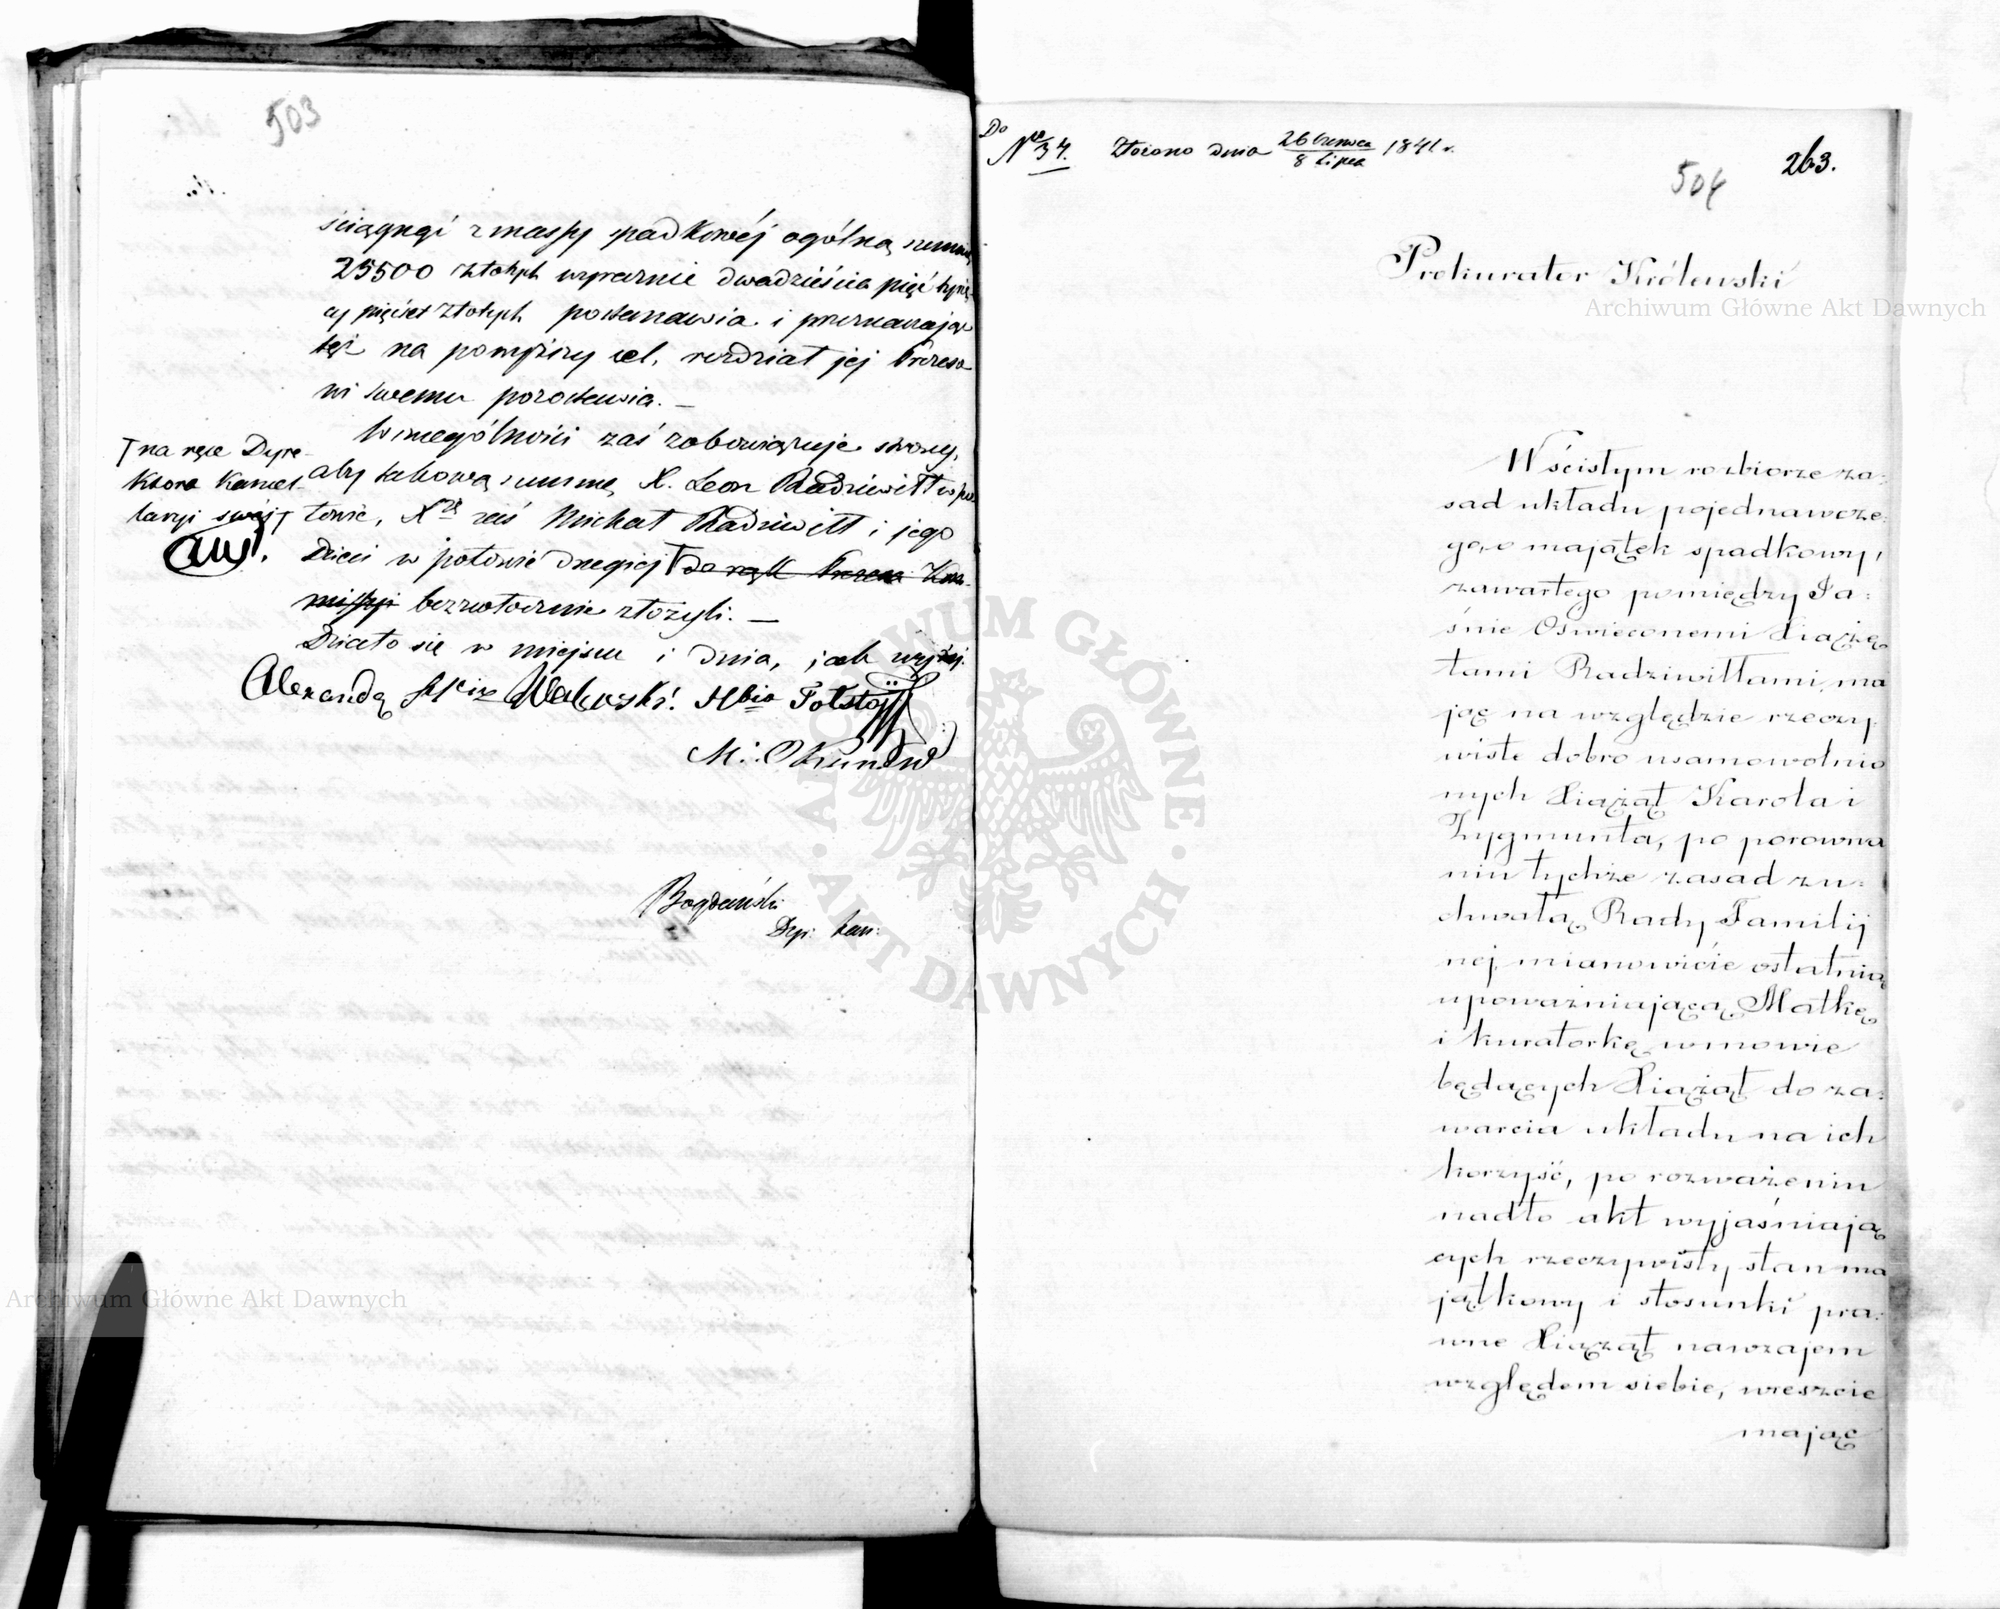 503
ściągnąć z massy spadkowéj ogólną summę
25500 złotych wyraźnie dwadzieścia pięć tysię-
cy pięćset złotych postanawia i przeznaczając
też na powyższy cel, rozdział jej Prezeso
wi swemu pozostawia. —
W szczególności zaś zobowiązuje strony,
aby takową summę X. Leon Radziwiłł w po
łowie, Xże zaś Michał Radziwiłł i jego
Dzieci w połowie drugiej do rąk Prezesa Kom-
missyi bezzwłocznie złożyli. —
na ręce Dyre-
ktora Kancel-
laryi swéj
Działo się w miejscu i dnia, jak wyżéj.
Alexander Walewski. Hbia Tołstoy
M. Okuniew
Bogdański
Dyr: Kan:
Do
No 34. Złożono dnia 26 Czerwca / 8 Lipca 1841 r.
504
263.
Prokurator Królewski
W ścisłym rozbiorze za-
sad układu pojednawcze-
go, o majątek spadkowy,
zawartego pomiędzy Ja-
śnie Oświeconemi Xiążę
tami Radziwiłłami, ma
jąc na względzie rzeczy
wiste dobro usamowolnio
nych Xiążąt Karola i
Zygmunta, po porowna
niu tychże zasad z u-
chwałą Rady Familij
nej, mianowicie ostatnią
upoważniającą Matkę
i kuratorkę w mowie
będących Xiążąt do za-
warcia układu na ich
korzyść, po rozważeniu
nadto akt wyjaśniają
cych rzeczywisty stan ma
jątkowy i stosunki pra-
wne Xiążąt nawzajem
względem siebie, wreszcie
mając
Archiwum Główne Akt Dawnych
Archiwum Główne Akt Dawnych
ARCHIWUM GŁÓWNE · AKT DAWNYCH ·